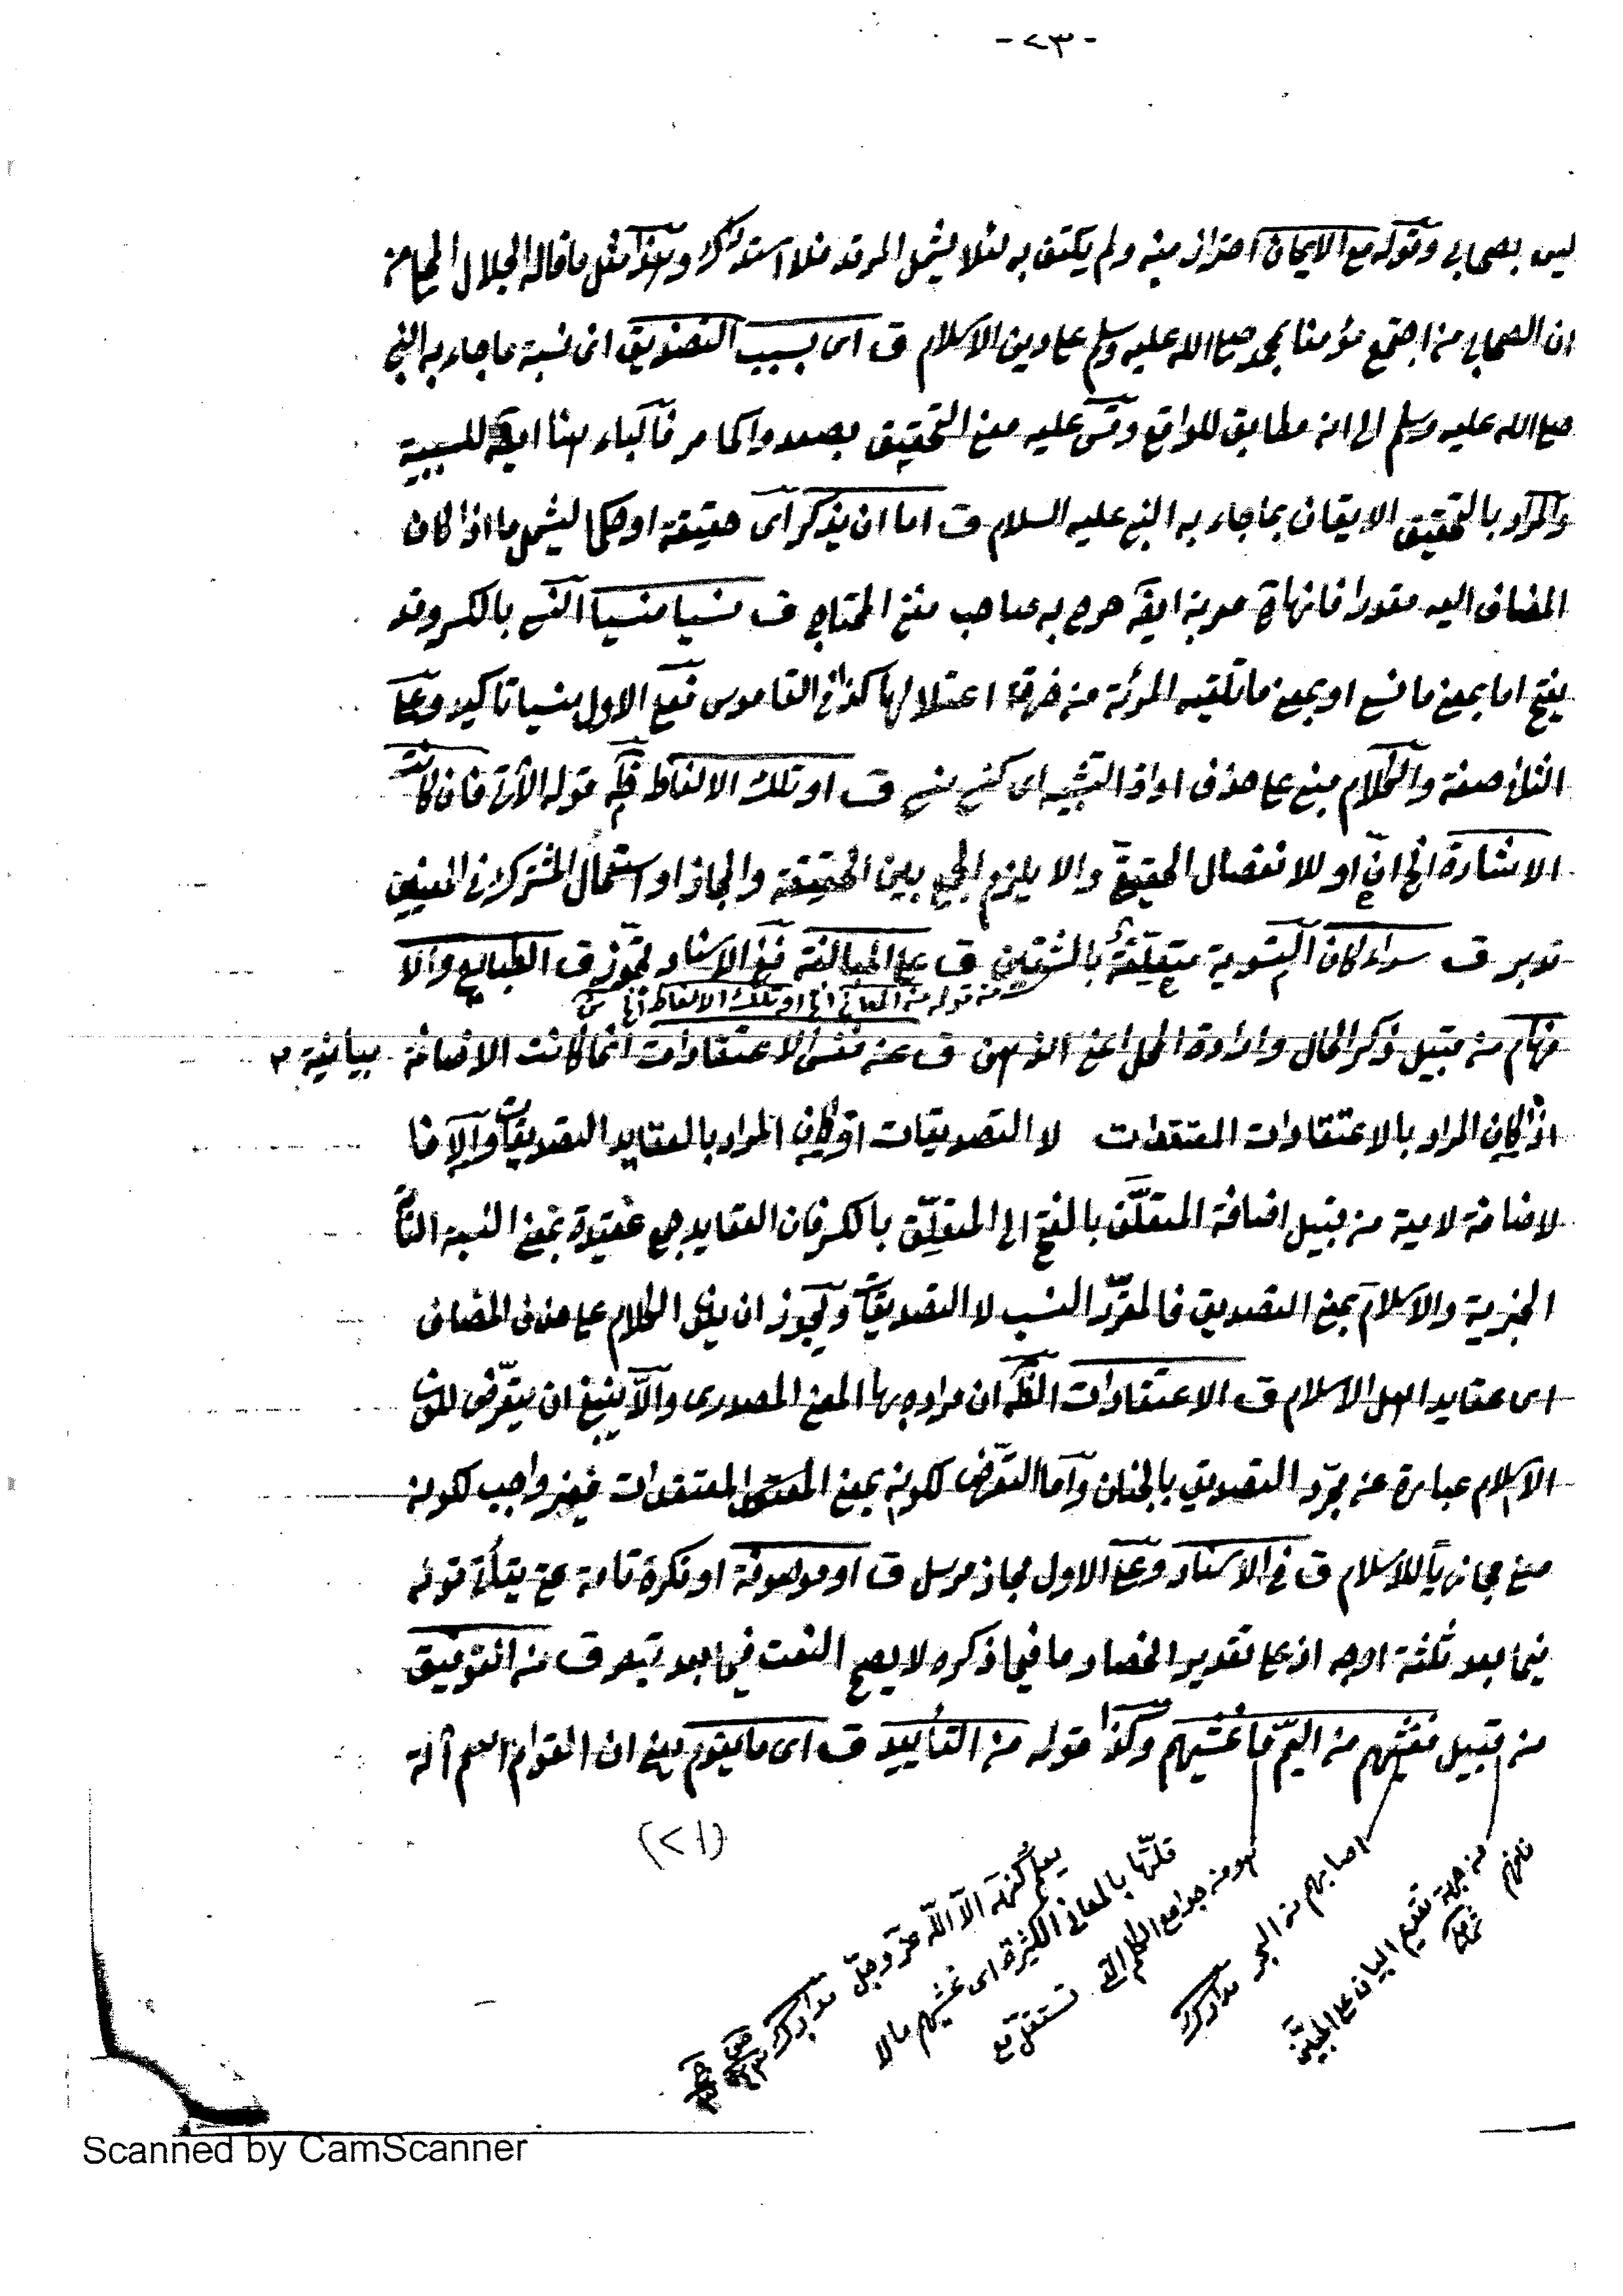 -٢٣-
ليس بصحابي وقوله مع الايمان احتراز منه ولم يكتف به لئلا يشمل المرتد فلا استدراك وهذا مثل ما قاله الجلال المحلي من
ان الصحابي من اجتمع مؤمنا بمحمد صلى الله عليه وسلم على دين الاسلام ق اى بسبب التصديق اى نسبة ما جاء به النبي
صلى الله عليه وسلم الى انه مطابق للواقع وقس عليه معنى التحقيق بصعد واكما مر فالباء هنا ايضا للسببية
والمراد بالتحقيق الايقان بما جاء به النبي عليه السلام ق اما ان يذكر اى حقيقة او حكما ليشمل ما اذا كان
المضاف اليه مقدرا فانها ح معربة ايضا صرح به صاحب منن المحتاج ق نسيا منسيا النسي بالكسر وقد
يفتح اما بمعنى ما نسى او بمعنى ما تلقيه المرئة من خرقة اعتلالها كذا فى القاموس فعلى الاول منسيا تاكيد وعلى
الثانى صفة والكلام مبنى على حذف اداة التشبيه اى كنسى منسى ق او تلك الالفاظ قوله الآتى فان كانت
الاشارة الخ او للانفصال الحقيقي والا يلزم الجمع بين الحقيقة والمجاز او استعمال المشترك فى المعنيين
تدبر ق سواء كان التسوية متعلقة بالشقين ق على المبالغة ففى الاسناد تجوز ق الطبايع والا
من قوله من المعانى الخ او تلك الالفاظ الخ
فهام من قبيل ذكر الحال وارادة المحل اعنى الذهن ق عن نفس الاعتقادات انما كانت الاضافة بيانية
اذا كان المراد بالاعتقادات المعتقدات لا التصديقات او كان المراد بالعقايد التصديقات والا فا
لاضافة لامية من قبيل اضافة المتعلَّق بالفتح الى المتعلِّق بالكسر فان العقايد جمع عقيدة بمعنى النسبة التامة
الخبرية والاسلام بمعنى التصديق فالمقرّ النسب لا التصديقات ويجوز ان يكون الكلام على حذف المضاف
اى عقايد اهل الاسلام ق الاعتقادات الظ ان مراده بها المعنى المصدرى والا ينبغى ان يتعرض لكون
الاسلام عبارة عن مجرد التصديق بالجنان واما التعرض لكونه بمعنى المعتقدات فغير واجب لكونه
معنى مجازيا للاسلام ق فى الاسناد وعلى الاول مجاز مرسل ق او موصوفة او نكرة تامة حتى يتأتى قوله
فيما بعد ثلثة اوجه اذ على تقدير انحصار ما فيما ذكره لا يصح النعت فيما بعد تبصر ق من التوفيق
من قبيل فغشيهم من اليم ما غشيهم وكذا قوله من التأييد ق اى ما يقوم يعنى ان القوام اسم آلة
(٢١)
فانهم
من جهة تقديم البيان على المبيّن
اصابهم من البحر مدارك
هو من جوامع الكلم التى تستقل مع
قلّتها بالمعانى الكثيرة اى غشيهم ما لا
يعلم كنهه الا الله عز وجل مدارك
Scanned by CamScanner